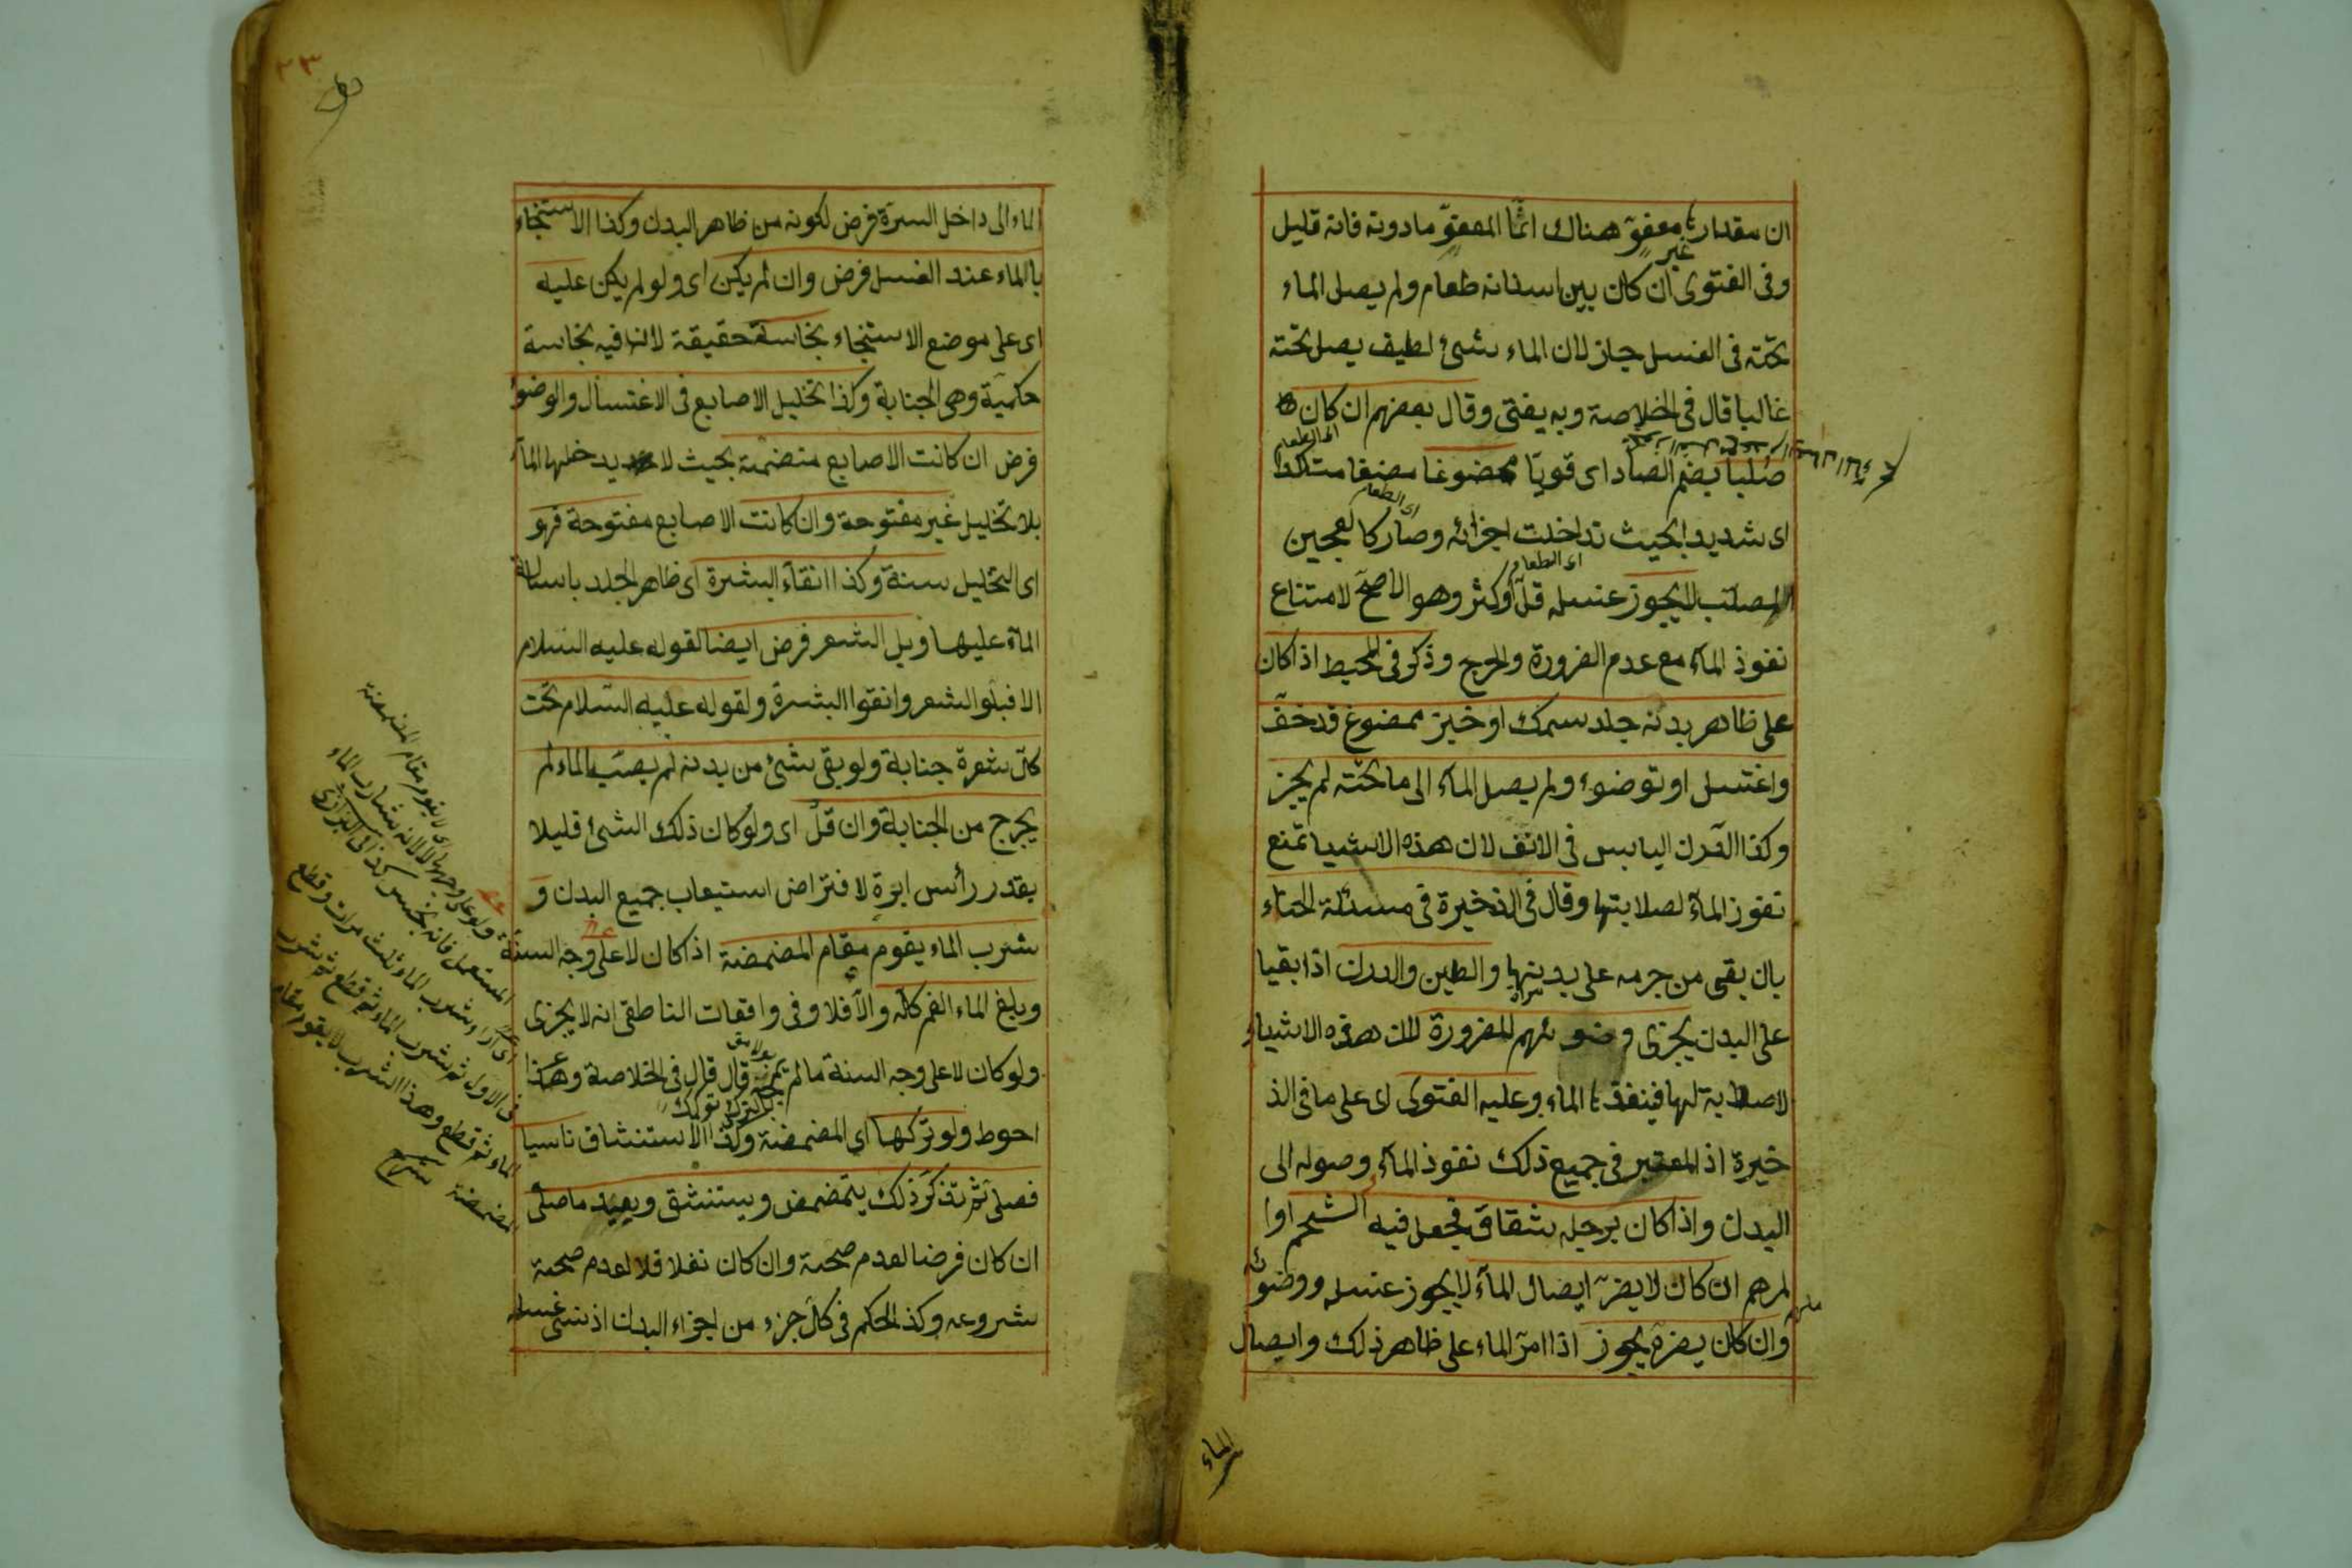 ان مقدارها معفوّ هناك انّما المعفوّ مادونه فانه قليل
غير
وفى الفتوى ان كان بين اسنانه طعام ولم يصل الماء
تحته فى الغسل جاز لان الماء شئ لطيف يصل تحته
غالبا قال فى الخلاصة وبه يفتى وقال بعضهم ان كان
اى الطعام
صلبا بضم الصاد اى قويّا ممضوغا مضغا متأكدا
اى شديدا بحيث تداخلت اجزائه وصار كالعجين
اى الطعام
المصلّب لا يجوز غسله قلّ او كثر وهو الاصحّ لامتناع
اى الطعام
نفوذ الماء مع عدم الضرورة والحرج وذكر فى المحيط اذا كان
على ظاهر بدنه جلد سمك او خبز ممضوغ قد خفّ
واغتسل او توضؤ ولم يصل الماء الى ما تحته لم يجز
وكذا الدّرن اليابس فى الانف لان هذه الاشيا تمنع
نفوز الماء لصلابتها وقال فى الذخيرة فى مسئلة الحناء
بان بقى من جرمه على بدنها والطين والدرن اذا بقيا
على البدن يجزى وضوئهم للضرورة لان هذه الاشياء
لا صلابة لها فينفذها الماء وعليه الفتوى اى على ما فى الذ
خيرة اذ المعتبر فى جميع ذلك نفوذ الماء وصوله الى
البدن واذا كان برجله شقاق فجعل فيه الشحم اوا
لمرهم ان كان لا يضرّ ايصال الماء لا يجوز غسله ووضوئه
وان كان يضره يجوز اذا امرّ الماء على ظاهر ذلك وايصال
الماء
٢٣
الماء الى داخل السرّة فرض لكونه من ظاهر البدن وكذا الاستنجاء
با الماء عند الغسل فرض وان لم يكن اى ولو لم يكن عليه
اى على موضع الاستنجاء نجاسة حقيقة لان فيه نجاسة
حكميّة وهى الجنابة وكذا تخليل الاصابع فى الاغتسال والوضوء
فرض ان كانت الاصابع منضمّة بحيث لا يدخلها الماء
بلا تخليل غير مفتوحة وان كانت الاصابع مفتوحة فهو
اى التخليل سنة وكذا انقاء البشرة اى ظاهر الجلد باسالة
الماء عليها وبل الشعر فرض ايضا لقوله عليه السلام
الا فبلوا الشعر وانقوا البشرة ولقوله عليه السلام تحت
كلّ شعرة جنابة ولو بقى شئ من بدنه لم يصبه الماء لم
يخرج من الجنابة وان قلّ اى ولو كان ذلك الشئ قليلا
بقدر رأس ابرة لافتراض استيعاب جميع البدن و
شرب الماء يقوم مقام المضمضة اذا كان لا على وجه السنة
وبلغ الماء الفم كلّه والّا فلا وفى واقعات الناطقى انه لا يجزى
ولو كان لا على وجه السنة ما لم يمجّه قال قال فى الخلاصة وهذا
احوط ولو تركها اى المضمضة وكذا الاستنشاق ناسيا
فصلى ثم تذكر ذلك يتمضمض ويستنشق ويعيد ما صلى
ان كان فرضا لعدم صحة وان كان نفلا فلا لعدم صحة
شروعه وكذا الحكم فى كلّ جزء من اجزاء البدن اذ نسى غسله
اى لا يقوم مقام المضمضة
ولو على وجهها لا لانه شارب الماء
المستعمل فانه نجس كذا فى البزازى
اى اراد شرب الماء ثلث مرات وقطع
فى الاول ثم شرب الماء ثم قطع ثم شرب
الماء ثم قطع وهذا الشرب لا يقوم مقام
المضمضة شرح